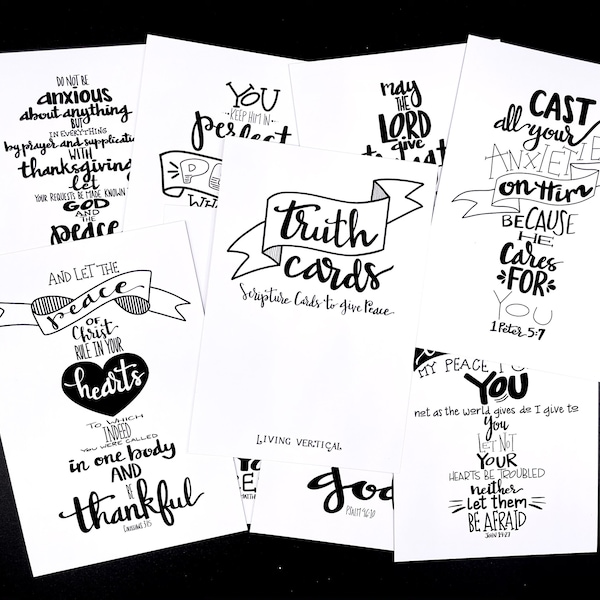 DO NOT BE
anxious
about anything
BUT
IN EVERYTHING
by prayer and supplication
WITH
thanksgiving
let
YOUR REQUESTS BE MADE KNOWN
GOD
AND THE
peace
YOU
KEEP HIM IN
perfect
may
THE
LORD
give
CAST
all your
ON Him
BECAUSE
HE
Cares
FOR
YOU
1 Peter 5:7
truth
cards
Scripture Cards to Give Peace
LIVING VERTICAL
AND LET THE
peace
OF
Christ
RULE IN YOUR
hearts
TO WHICH
INDEED
YOU WERE CALLED
in one body
AND
BE
thankful
Colossians 3:15
god
PSALM 46:10
MY PEACE
YOU
not as the world gives do I give to
You
LET NOT
YOUR
HEARTS BE TROUBLED
neither
Let them
BE AFRAID
JOHN 14:27